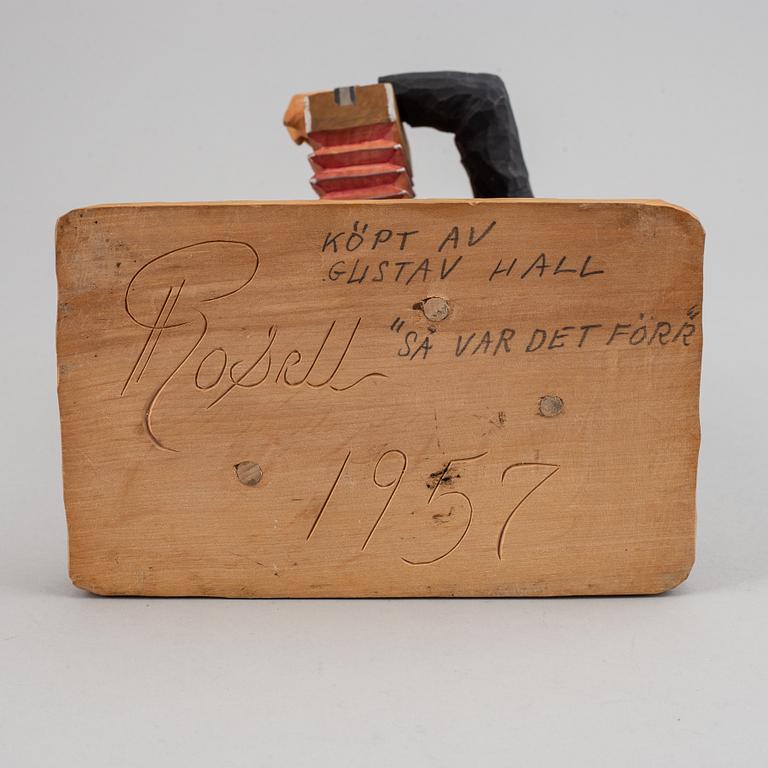 KÖPT AV
GUSTAV HALL
"SÅ VAR DET FÖRR"
Rosell
1957